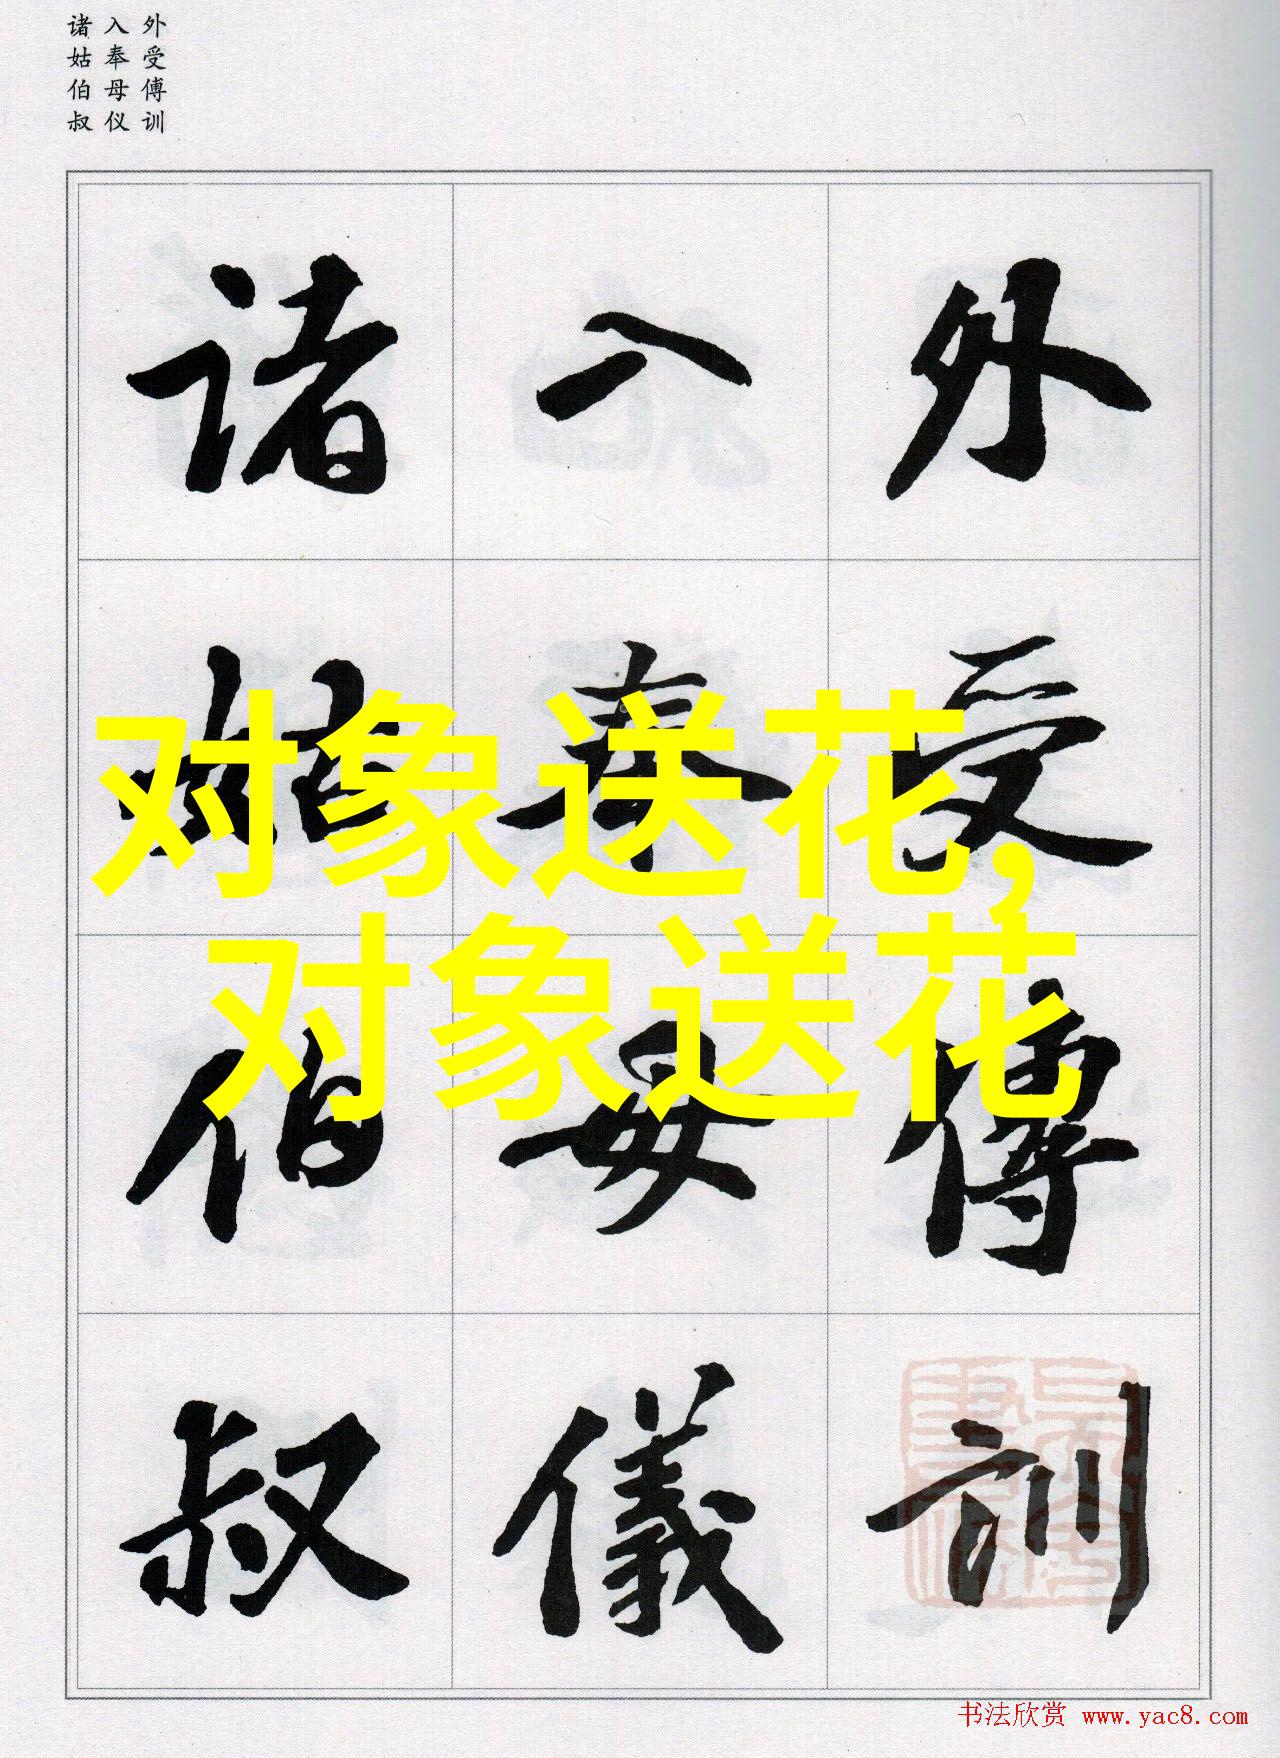 外受傅训
入奉母仪
诸姑伯叔
外受傅訓
入奉母儀
诸姑伯叔
对象送花,
对象送花
书法欣赏 www.yac8.com